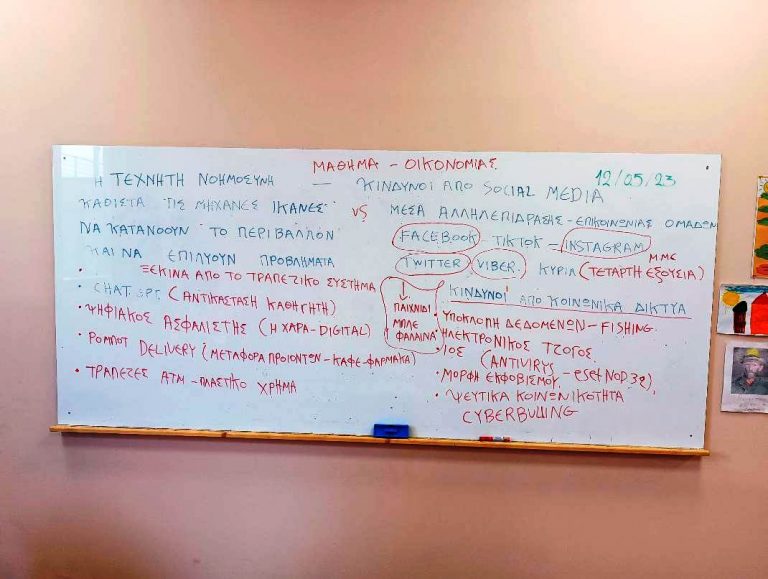 ΜΑΘΗΜΑ - ΟΙΚΟΝΟΜΙΑΣ
12/05/23
Η ΤΕΧΝΗΤΗ ΝΟΗΜΟΣΥΝΗ
ΚΑΘΙΣΤΑ ΤΙΣ ΜΗΧΑΝΕΣ ΙΚΑΝΕΣ
ΝΑ ΚΑΤΑΝΟΟΥΝ ΤΟ ΠΕΡΙΒΑΛΛΟΝ
ΚΑΙ ΝΑ ΕΠΙΛΥΟΥΝ ΠΡΟΒΛΗΜΑΤΑ
• ΞΕΚΙΝΑ ΑΠΟ ΤΟ ΤΡΑΠΕΖΙΚΟ ΣΥΣΤΗΜΑ
• CHAT GPT (ΑΝΤΙΚΑΣΤΑΣΗ ΚΑΘΗΓΗΤΗ)
• ΨΗΦΙΑΚΟΣ ΑΣΦΑΛΙΣΤΗΣ (Η ΧΑΡΑ-DIGITAL)
• ΡΟΜΠΟΤ DELIVERY (ΜΕΤΑΦΟΡΑ ΠΡΟΙΟΝΤΩΝ-ΚΑΦΕ-ΦΑΡΜΑΚΑ)
• ΤΡΑΠΕΖΕΣ ATM - ΠΛΑΣΤΙΚΟ ΧΡΗΜΑ
— ΚΙΝΔΥΝΟΙ ΑΠΟ SOCIAL MEDIA
VS ΜΕΣΑ ΑΛΛΗΛΕΠΙΔΡΑΣΗΣ-ΕΠΙΚΟΙΝΩΝΙΑΣ ΟΜΑΔΩΝ
FACEBOOK - TIKTOK - INSTAGRAM
ΜΜΕ
TWITTER VIBER. ΚΥΡΙΑ (ΤΕΤΑΡΤΗ ΕΞΟΥΣΙΑ)
↓
ΠΑΙΧΝΙΔΙ
ΜΠΛΕ
ΦΑΛΑΙΝΑ
ΚΙΝΔΥΝΟΙ ΑΠΟ ΚΟΙΝΩΝΙΚΑ ΔΙΚΤΥΑ
• ΥΠΟΚΛΟΠΗ ΔΕΔΟΜΕΝΩΝ - FISHING
• ΗΛΕΚΤΡΟΝΙΚΟΣ ΤΖΟΓΟΣ
• ΙΟΣ (ANTIVIRYS
• ΜΟΡΦΗ ΕΚΦΟΒΙΣΜΟΥ - eset NOD 32)
• ΨΕΥΤΙΚΑ ΚΟΙΝΩΝΙΚΟΤΗΤΑ
CYBERBULLING